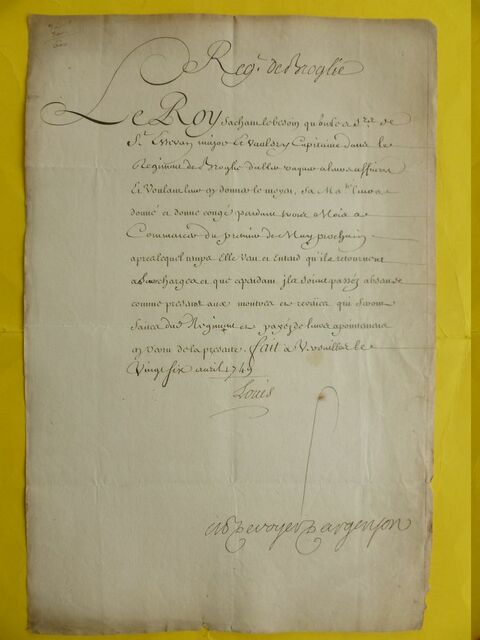 Reg.t de Broglie
Le Roy sachant le besoin qu'ont les S.rs de
S.t Estevan major Et Vaulery Capitaine dans le
Regiment de Broglie d'aller vaquer a leurs affaires
Et Voulant leur en donner le moyen, Sa Ma.té leur a
donné et donne congé pendant trois Mois a
Commencer du premier de May prochain
apres lequel temps Elle veut et Entend qu'ils retournent
a leurs charges et que cependant ils soient passés absens
comme presens aux montres et reveües qui seront
faites dud. Regiment et payés de leurs apointemens
en vertu de la presente. Fait a Versailles le
Vingt six avril 1749
Louis
De Voyer D'argenson